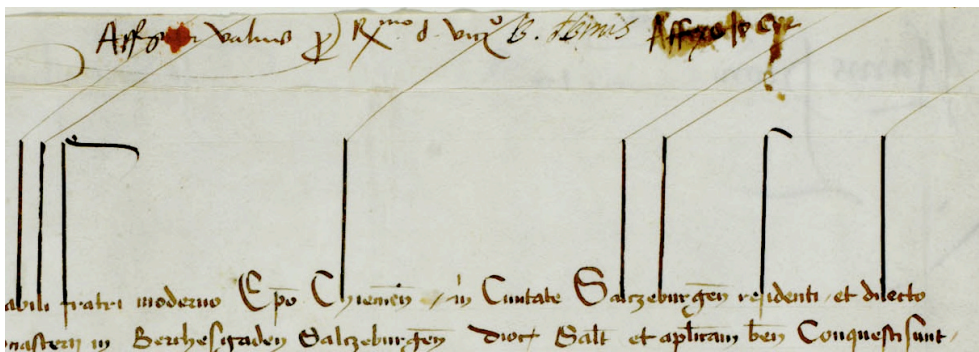 p Rmo d vic
abili fratri moderno Epo Chiemen in Ciuitate Salczeburgen residenti et dilecto
onasterij in Berchesgaden Salczeburgen dioc Salt et aplicam ben Conquesti sunt